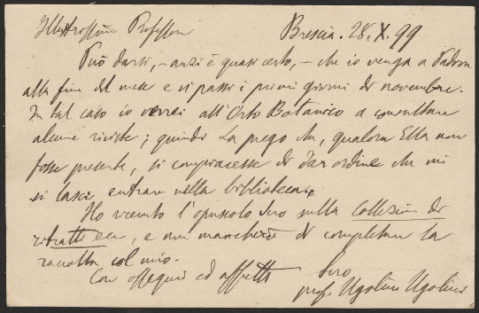 Illustrissimo Professore Brescia. 28.X.99
Può darsi, - anzi è quasi certo, - che io venga a Padova
alla fine del mese e vi passi i primi giorni di novembre.
In tal caso io verrei all'Orto Botanico a consultare
alcune riviste; quindi La prego che, qualora Ella non
fosse presente, si compiacesse di dar ordine che mi
si lasci entrare nella biblioteca.
Ho ricevuto l'opuscolo Suo sulla collezione di
ritratti ecc, e non mancherò di completare la
raccolta col mio.
Con ossequi ed affetto Suo
prof. Ugolino Ugolini